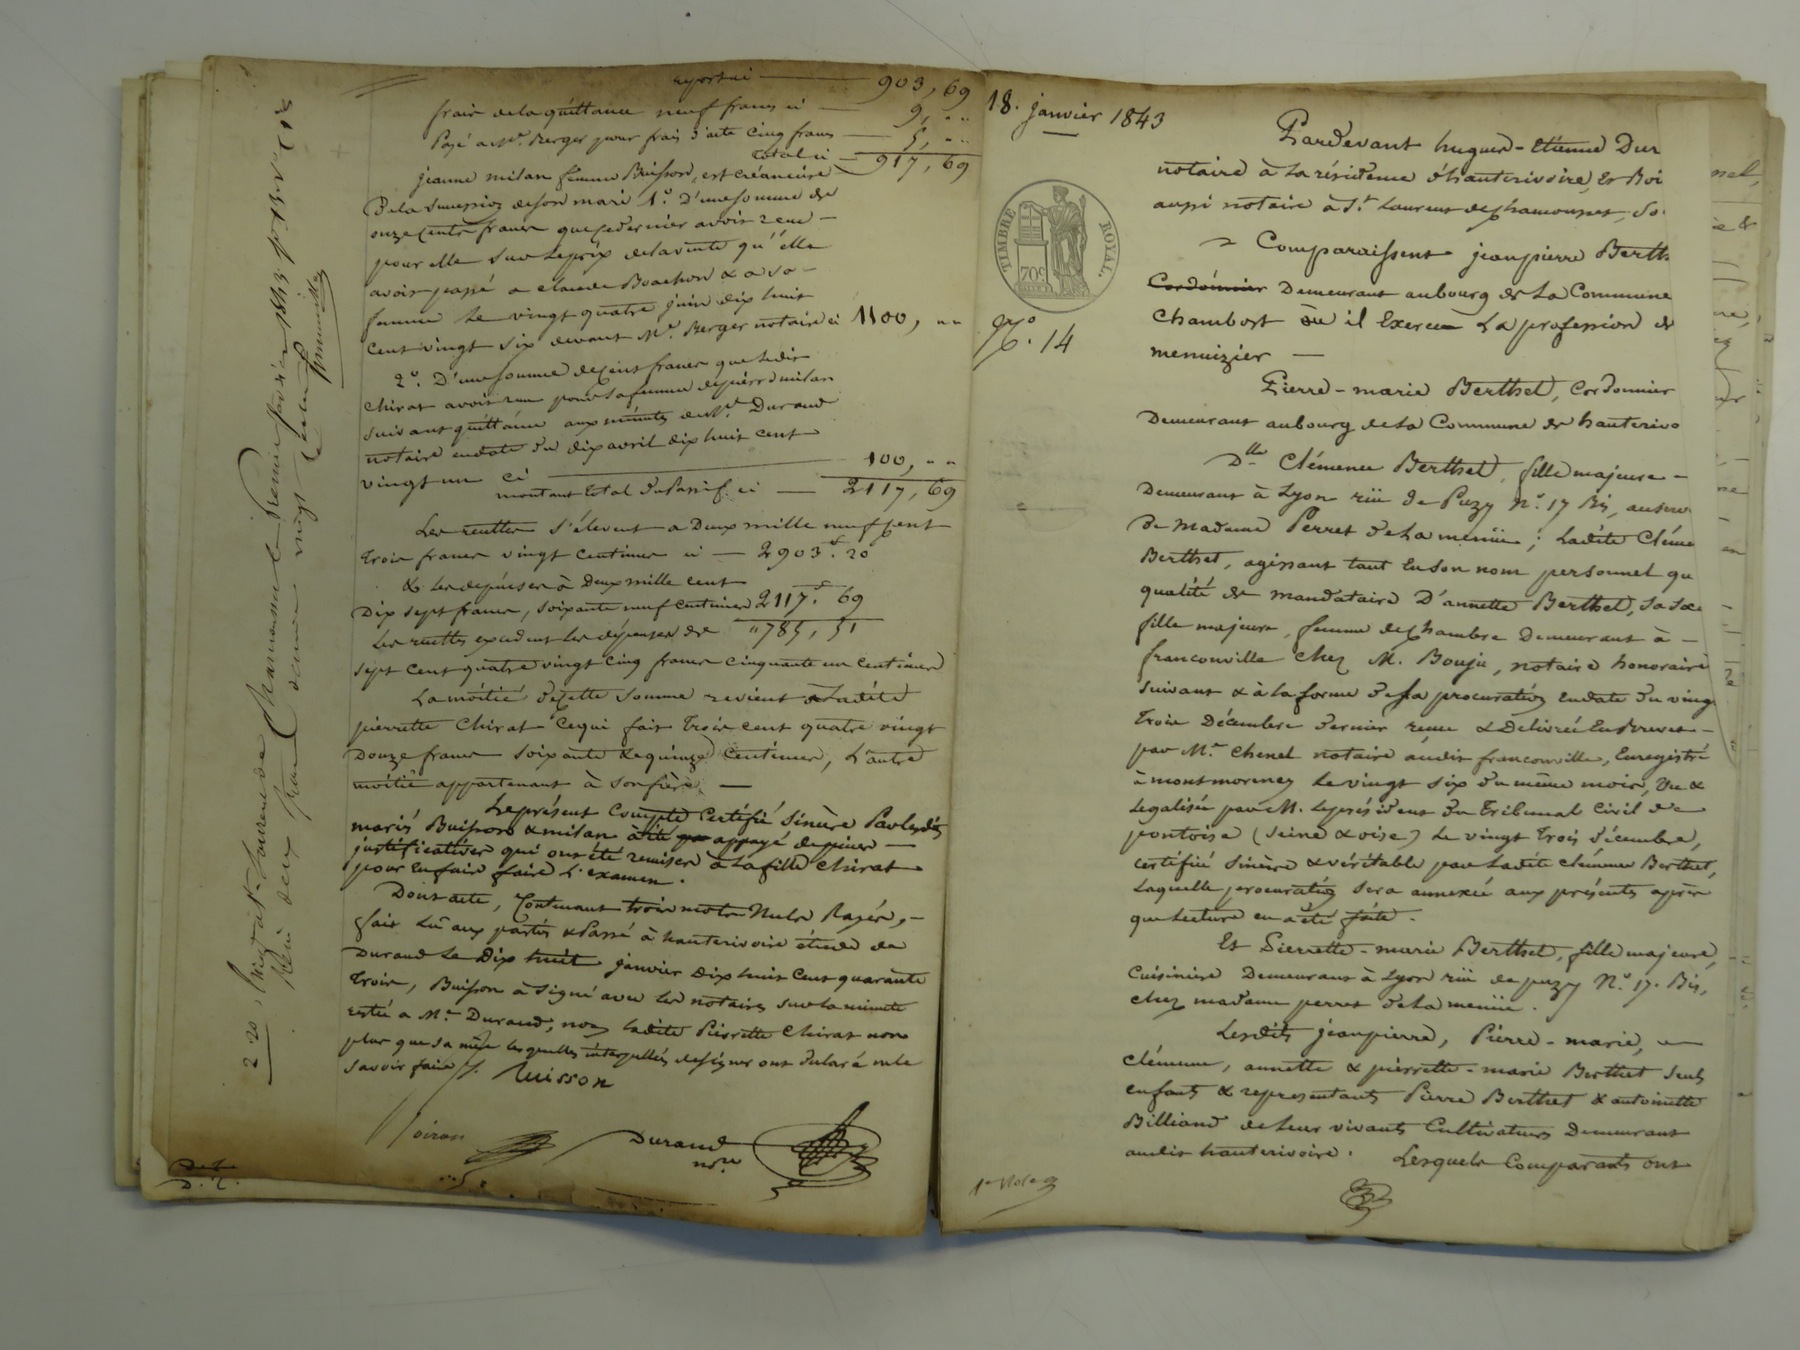 reportai — 903, 69
frais de la quittance neuf francs ci — 9, "
Payé a Me. Berger pour frais d'acte cinq francs — 5, "
Total ci — 917, 69
jeanne milan femme Buisson, est créancière
De la succession de son mari 1°. D'une somme de
onze cents francs que ce dernier avoit reçu
pour elle sur le prix de la vente qu'elle
avoit passé a claude Boachon & a sa
femme le vingt quatre juin dix huit
cent vingt six devant Me. Berger notaire ci 1100, "
2°. D'une somme de cent francs que ledit
Chirat avoit reçu pour la femme de pierre milan
suivant quittance aux minutes de Me. Durand
notaire en date du dix avril dix huit cent
vingt un ci — 100, "
montant total du Passif ci — 2117, 69
Les recettes s'élevent a Deux mille neuf cent
trois francs vingt centimes ci — 2903f. 20
& les dépenses à Deux mille cent
Dix sept francs, soixante neuf centimes 2117f. 69
Les recettes excedent les dépenses de "785, 51
sept cent quatre vingt cinq francs cinquante un centimes
La moitié de cette somme revient à Ladite
pierrette Chirat ce qui fait trois cent quatre vingt
Douze francs soixante & quinze centimes, L'autre
moitié appartenant à son frère. —
Le présent Compte Certifié sincère Par lesdits
mariés Buisson & milan à été appuyé de pièces
justificatives qui ont été remises à la fille Chirat
pour En faire faire L'examen.
Dont acte, Contenant trois mots Nuls Rayés,
fait Lû aux parties & Passé à hauterivoire étude de
Durand Le Dix huit janvier Dix huit Cent quarante
trois, Buisson à signé avec les notaires sur la minute
restée a Me. Durand, non ladite Pierrette Chirat non
plus que sa mère lesquelles interpellées de signer ont déclaré ne le
savoir faire /.
Buisson
Durand
nre
2 20
18. janvier 1843
TIMBRE ROYAL.
70c
No. 14
Pardevant hugues-Etienne Dur
notaire à la résidence d'hauterivoire, Et Boi
aussi notaire à St. Laurent de Chamousset, So
Comparaissent jean pierre Berth
Cordonnier Demeurant au bourg de La Commune
Chambost où il Exerce La profession de
menuizier —
Pierre-marie Berthet, Cordonnier
Demeurant au bourg de la Commune de hauterivo
Dlle Clémence Berthet, fille majeure
Demeurant à Lyon rüe de Puzy No. 17 Bis, au serv
de Madame Perret de La menüe; Ladite Cléme
Berthet, agissant tant En son nom personnel qu
qualité de mandataire D'annette Berthet, sa sœ
fille majeure, femme de Chambre Demeurant à
franconville Chez M. Bouju, notaire honoraire
suivant & à la forme de sa procuration En date du ving
trois Décembre dernier reçue & Delivrée En Brevet
par Me. Chenel notaire audit franconville, Enregistré
à montmorency le vingt six du même mois, Vu &
Legalisée par M. le président du Tribunal Civil de
pontoise (seine & oise) le vingt trois décembre,
certifié sincère & véritable par Ladite clémence Berthet,
Laquelle procuration sera annexée aux présentes après
que Lecture en a été faite.
Et Pierrette-marie Berthet, fille majeure,
Cuisinière Demeurant à Lyon rüe de puzy No. 17. Bis,
chez madame perret de La menüe.
Lesdits jean pierre, Pierre-marie,
Clémence, annette & pierrette-marie Berthet seuls
enfants & representants Pierre Berthet & antoinette
Billiand de Leur vivants Cultivateurs Demeurant
audit hauterivoire. Lesquels Comparants ont